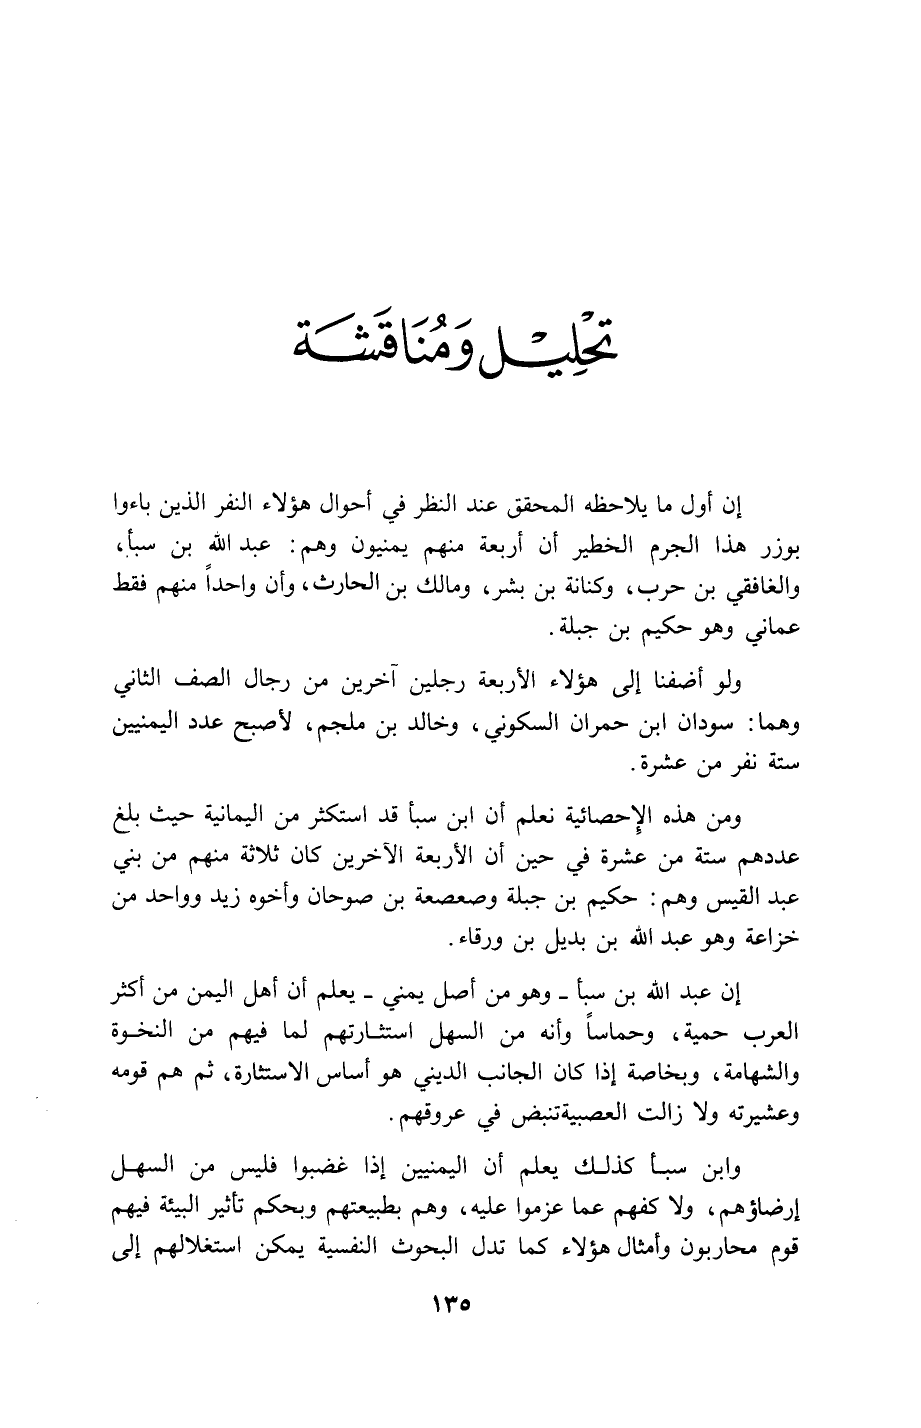 تَحْلِيْل وَمُنَاقَشَة
إن أول ما يلاحظه المحقق عند النظر في أحوال هؤلاء النفر الذين باءوا
بوزر هذا الجرم الخطير أن أربعة منهم يمنيون وهم: عبد الله بن سبأ،
والغافقي بن حرب، وكنانة بن بشر، ومالك بن الحارث، وأن واحداً منهم فقط
عماني وهو حكيم بن جبلة.
ولو أضفنا إلى هؤلاء الأربعة رجلين آخرين من رجال الصف الثاني
وهما: سودان ابن حمران السكوني، وخالد بن ملجم، لأصبح عدد اليمنيين
ستة نفر من عشرة.
ومن هذه الإحصائية نعلم أن ابن سبأ قد استكثر من اليمانية حيث بلغ
عددهم ستة من عشرة في حين أن الأربعة الآخرين كان ثلاثة منهم من بني
عبد القيس وهم: حكيم بن جبلة وصعصعة بن صوحان وأخوه زيد وواحد من
خزاعة وهو عبد الله بن بديل بن ورقاء.
إن عبد الله بن سبأ - وهو من أصل يمني - يعلم أن أهل اليمن من أكثر
العرب حمية، وحماساً وأنه من السهل استثارتهم لما فيهم من النخوة
والشهامة، وبخاصة إذا كان الجانب الديني هو أساس الاستثارة، ثم هم قومه
وعشيرته ولا زالت العصبيةتنبض في عروقهم.
وابن سبأ كذلك يعلم أن اليمنيين إذا غضبوا فليس من السهل
إرضاؤهم، ولا كفهم عما عزموا عليه، وهم بطبيعتهم وبحكم تأثير البيئة فيهم
قوم محاربون وأمثال هؤلاء كما تدل البحوث النفسية يمكن استغلالهم إلى
١٣٥